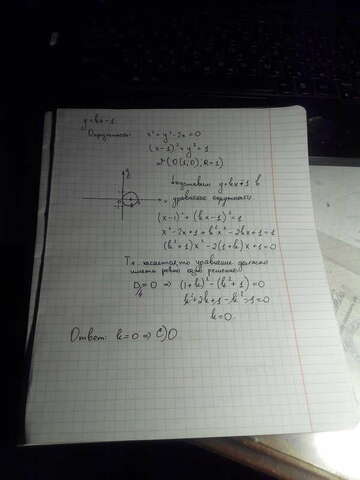 y=kx-1.
Окружность: x²+y²-2x=0
(x-1)²+y²=1
w(O(1,0), R=1)
y
Подставим y=kx-1 в
x уравнение окружности
(x-1)²+(kx-1)²=1
x²-2x+1+k²x²-2kx+1=1
(k²+1)x²-2(1+k)x+1=0
Т.к. касается, то уравнение должно
иметь ровно одно решение:
D/4=0 ⇒ (1+k)²-(k²+1)=0
k²+2k+1-k²-1=0
k=0.
Ответ: k=0 ⇒ С) 0